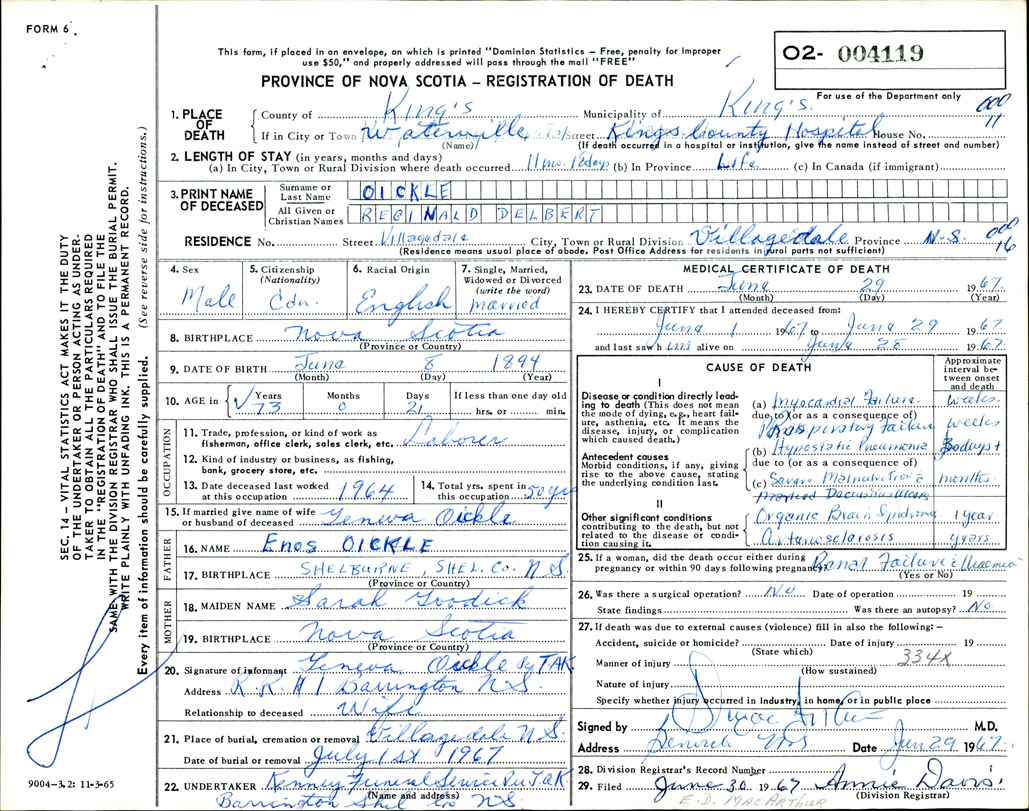 FORM 6
This form, if placed in an envelope, on which is printed "Dominion Statistics – Free, penalty for improper
use $50," and properly addressed will pass through the mail "FREE"
O2- 004119
For use of the Department only
PROVINCE OF NOVA SCOTIA – REGISTRATION OF DEATH
000
11
1. PLACE OF DEATH County of King's Municipality of King's.
If in City or Town Waterville Street Kings County Hospital House No.
(Name) (If death occurred in a hospital or institution, give the name instead of street and number)
2. LENGTH OF STAY (in years, months and days)
(a) In City, Town or Rural Division where death occurred 11 mo. 18 days (b) In Province Life (c) In Canada (if immigrant)
3. PRINT NAME OF DECEASED Surname or Last Name OICKLE
All Given or Christian Names REGINALD DELBERT
RESIDENCE No. Street Villagedale City, Town or Rural Division Villagedale Province N.S.
000
16
(Residence means usual place of abode. Post Office Address for residents in rural parts insufficient)
4. Sex Male
5. Citizenship (Nationality) Cdn.
6. Racial Origin English
7. Single, Married, Widowed or Divorced (write the word) married
8. BIRTHPLACE Nova Scotia
(Province or Country)
9. DATE OF BIRTH June 8 1894
(Month) (Day) (Year)
10. AGE in Years 73 Months 0 Days 21 If less than one day old hrs. or min.
OCCUPATION
11. Trade, profession, or kind of work as fisherman, office clerk, sales clerk, etc. Laborer
12. Kind of industry or business, as fishing, bank, grocery store, etc.
13. Date deceased last worked at this occupation 1964
14. Total yrs. spent in this occupation 50 yrs
15. If married give name of wife or husband of deceased Geneva Oickle
FATHER
16. NAME Enos OICKLE
17. BIRTHPLACE SHELBURNE, SHEL. Co. N S
(Province or Country)
MOTHER
18. MAIDEN NAME Sarah Goodick
19. BIRTHPLACE Nova Scotia
(Province or Country)
20. Signature of informant Geneva Oickle by TAK
Address R.R. # 1 Barrington N.S.
Relationship to deceased Wife
21. Place of burial, cremation or removal Villagedale N.S.
Date of burial or removal July 1st 1967
22. UNDERTAKER Kenney Funeral Service Per TAK
(Name and address)
Barrington Shel Co NS
MEDICAL CERTIFICATE OF DEATH
23. DATE OF DEATH June 29 1967.
(Month) (Day) (Year)
24. I HEREBY CERTIFY that I attended deceased from:
June 1 1967 to June 29 1967.
and last saw him alive on June 28 1967.
CAUSE OF DEATH
Approximate interval between onset and death
I
Disease or condition directly leading to death (This does not mean the mode of dying, e.g., heart failure, asthenia, etc. It means the disease, injury, or complication which caused death.)
(a) Myocardial Failure weeks
due to (or as a consequence of)
Respiratory Failure weeks
(b) Hypostatic Pneumonia 3 days +
due to (or as a consequence of)
Antecedent causes
Morbid conditions, if any, giving rise to the above cause, stating the underlying condition last.
(c) Severe Malnutrition & months
marked Decubitus Ulcers
II
Other significant conditions contributing to the death, but not related to the disease or condition causing it.
Organic Brain Syndrome 1 year
Arteriosclerosis years
25. If a woman, did the death occur either during pregnancy or within 90 days following pregnancy Renal Failure & Uraemia
(Yes or No)
26. Was there a surgical operation? No Date of operation 19
State findings Was there an autopsy? No
27. If death was due to external causes (violence) fill in also the following: –
Accident, suicide or homicide? Date of injury 19
(State which)
334X
Manner of injury
(How sustained)
Nature of injury
Specify whether injury occurred in industry, in home, or in public place
Signed by M.D.
Address Date Jun 29 1967.
28. Division Registrar's Record Number
29. Filed June 30 1967 Annie Davis
(Division Registrar)
E.D. MacArthur
SEC. 14 – VITAL STATISTICS ACT MAKES IT THE DUTY
OF THE UNDERTAKER OR PERSON ACTING AS UNDER-
TAKER TO OBTAIN ALL THE PARTICULARS REQUIRED
IN THE "REGISTRATION OF DEATH" AND TO FILE THE
SAME WITH THE DIVISION REGISTRAR WHO SHALL ISSUE THE BURIAL PERMIT.
WRITE PLAINLY WITH UNFADING INK. THIS IS A PERMANENT RECORD.
Every item of information should be carefully supplied. (See reverse side for instructions.)
9004-3.2: 11-3-65